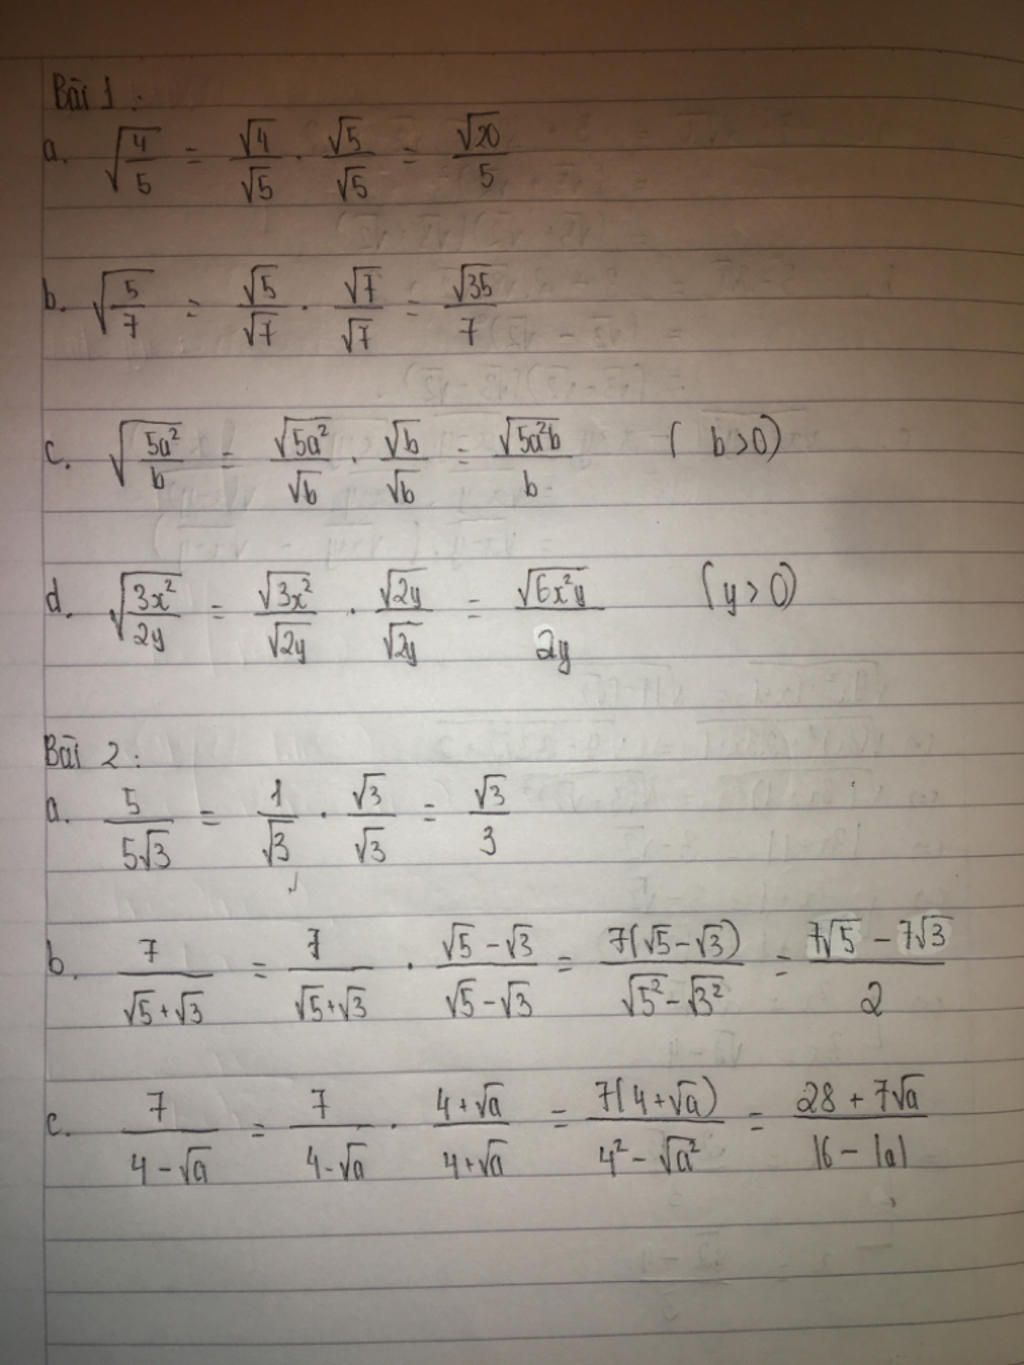 Bài 1 :
a. √(4/5) = √4/√5 . √5/√5 = √20/5
b. √(5/7) = √5/√7 . √7/√7 = √35/7
c. √(5a²/b) = √5a²/√b . √b/√b = √5a²b/b ( b>0)
d. √(3x²/2y) = √3x²/√2y . √2y/√2y = √6x²y/2y (y>0)
Bài 2 :
a. 5/5√3 = 1/√3 . √3/√3 = √3/3
b. 7/(√5+√3) = 7/(√5+√3) . (√5-√3)/(√5-√3) = 7(√5-√3)/(√5²-√3²) = (7√5-7√3)/2
c. 7/(4-√a) = 7/(4-√a) . (4+√a)/(4+√a) = 7(4+√a)/(4²-√a²) = (28+7√a)/(16-|a|)